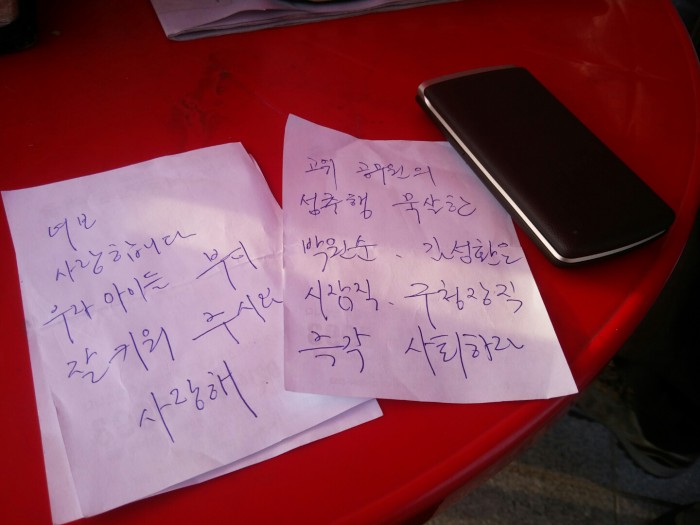 여보
사랑합니다
우라 아이들 부디
잘 키워 주시요
사랑해
고위 공무원의
성추행 묵살한
박원순. 김성환은
시장직. 구청장직
즉각 사퇴하라